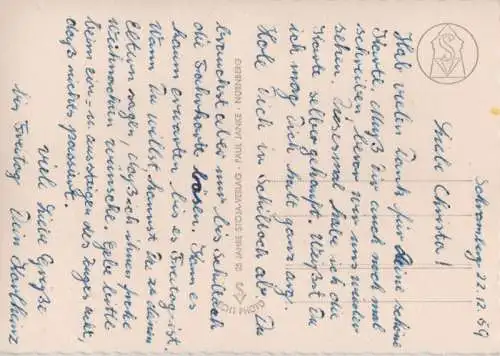 Schramberg 22.12.59
Liebe Christa!
Hab vielen Dank für Deine schöne
Karte. Muß Dir auch noch mal
schreiben bevor wir uns wieder
sehen. Diesmal habe ich die
Karte selber gekauft. Weißt Du
ich mag Dich halt ganz arg.
Hole Dich in Schiltach ab. Du
brauchst aber nur bis Schiltach
die Fahrkarte lösen. Kann es
kaum erwarten bis es Freitag ist.
Wenn Du willst, kannst Du zu deinen
Eltern sagen, daß ich ihnen frohe
Weihnachten wünsche. Gebe bitte
beim ein- u. aussteigen des Zuges acht,
daß nichts passiert.
Viele liebe Grüße
bis Freitag Dein Karlheinz